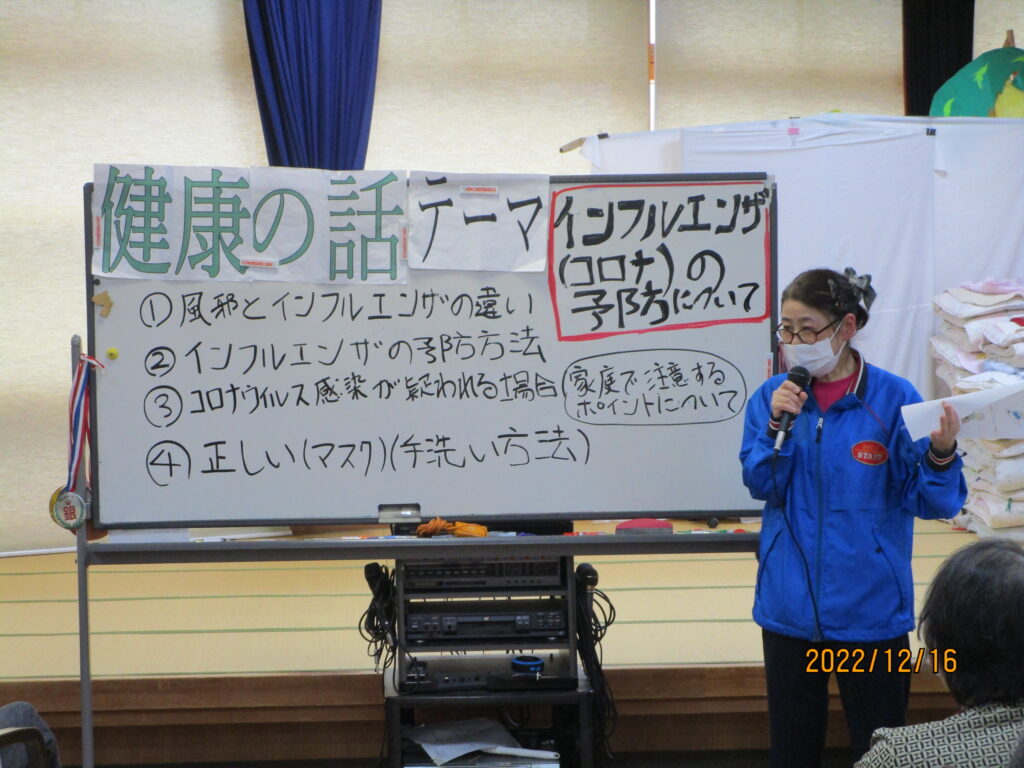 健康の話
テーマ
インフルエンザ
(コロナ)の
予防について
①風邪とインフルエンザの違い
②インフルエンザの予防方法
③コロナウィルス感染が疑われる場合(家庭で注意する
ポイントについて
④正しい(マスク)(手洗い方法)
銀
STAFF
2022/12/16